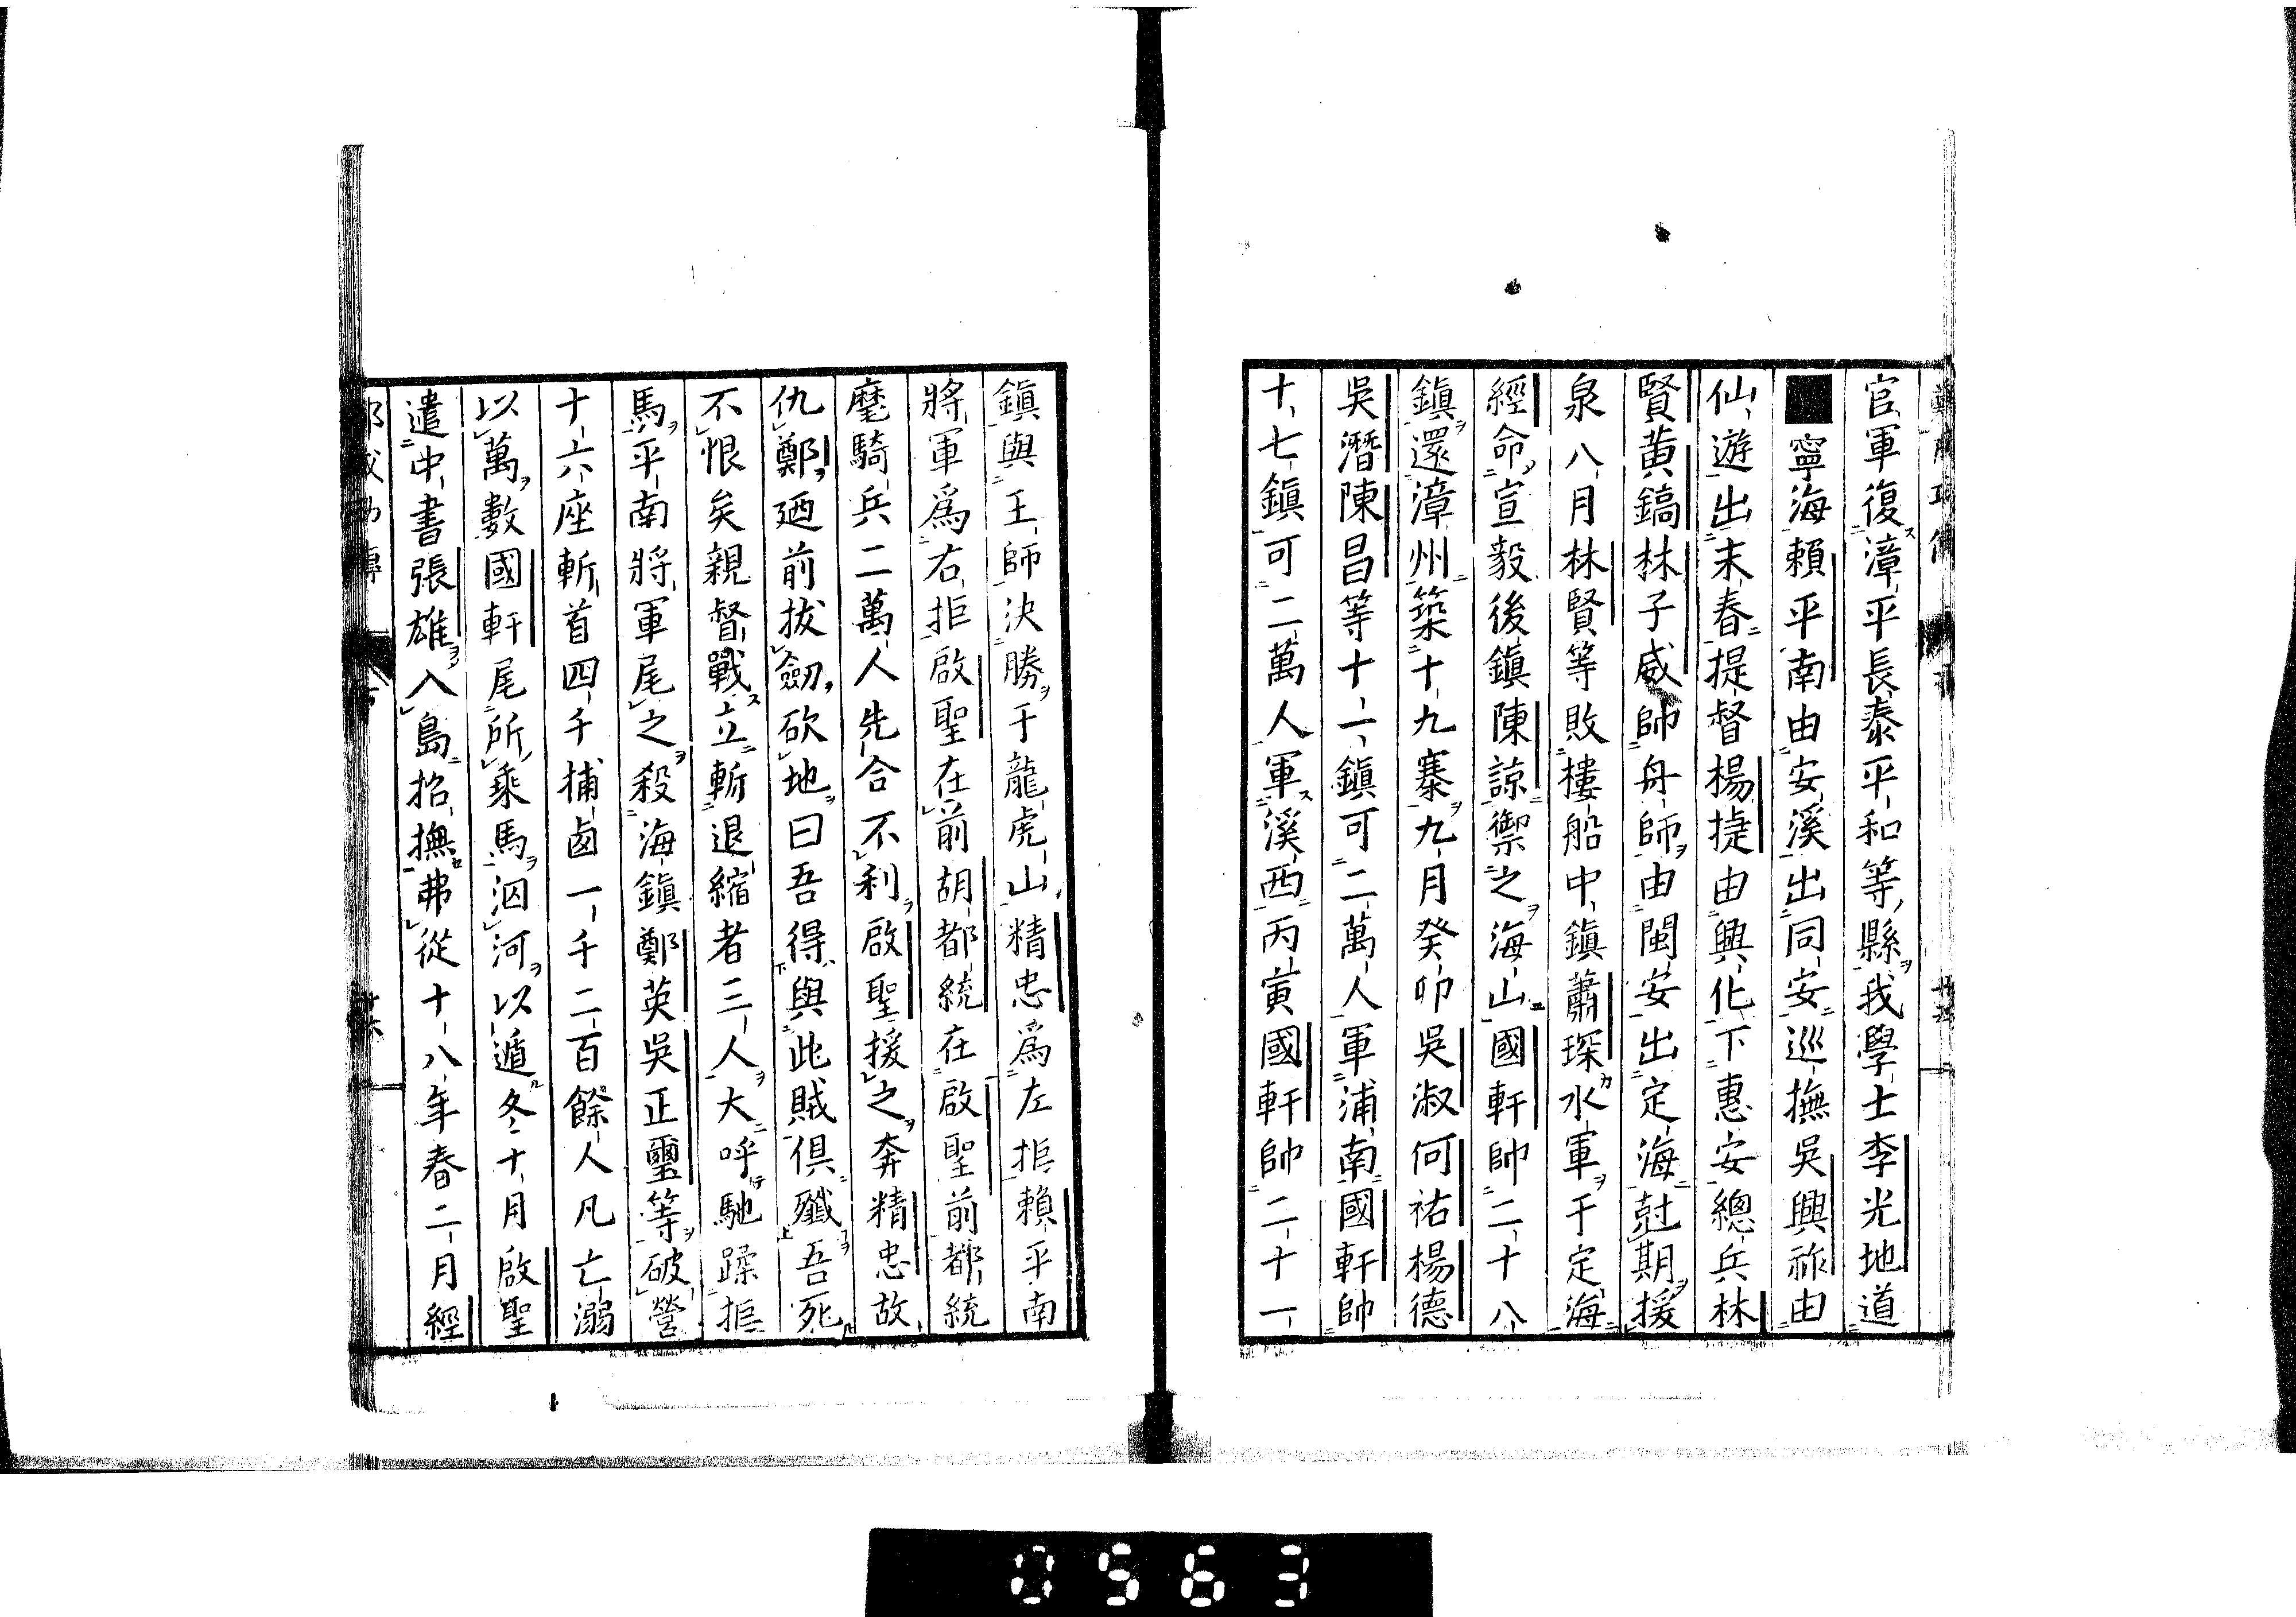 官軍復漳平長泰平和等縣我學士李光地道
■寧海賴平南由安溪出同安巡撫吳興祚由
仙遊出末春提督楊捷由興化下惠安總兵林
賢黄鎬林子威帥舟師由閩安出定海尅期援
泉八月林賢等敗樓船中鎮蕭琛水軍于定海
經命宣毅後鎮陳諒禦之海山國軒帥二十八
鎮還漳州築十九寨九月癸卯吳淑何祐楊德
吳潛陳昌等十一鎮可二萬人軍浦南國軒帥
十七鎮可二萬人軍溪西丙寅國軒帥二十一
鎮與王師決勝于龍虎山精忠爲左拒賴平南
將軍爲右拒啟聖在前胡都統在啟聖前都統
麾騎兵二萬人先合不利啟聖援之奔精忠故
仇鄭廼前拔劒砍地曰吾得與此賊俱殲吾死
不恨矣親督戰立斬退縮者三人大呼馳蹂拒
馬平南將軍尾之殺海鎮鄭英吳正璽等破營
十六座斬首四千捕鹵一千二百餘人凡亡溺
以萬數國軒尾所乘馬泅河以遁冬十月啟聖
遣中書張雄入島招撫弗從十八年春二月經
0563